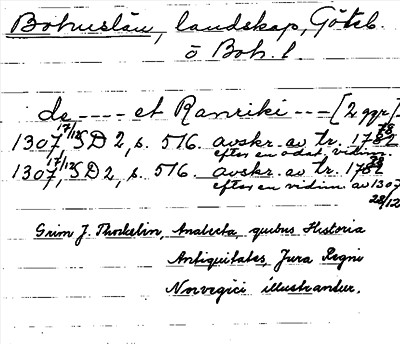 Bohuslän, landskap, Göteb.
o Boh. l.
de ---- et Ranriki --- [2 ggr]
1307 17/12, SD 2, s. 516. avskr. av tr. 1782
efter en odat. vidim.
1307 17/12, SD 2, s. 516. avskr. av tr. 178
efter en vidim. av 1307
28/12
Grim J. Thorkelin, Analecta, quibus Historia
Antiquitates, Jura Regni
Norvegici illustrandur.